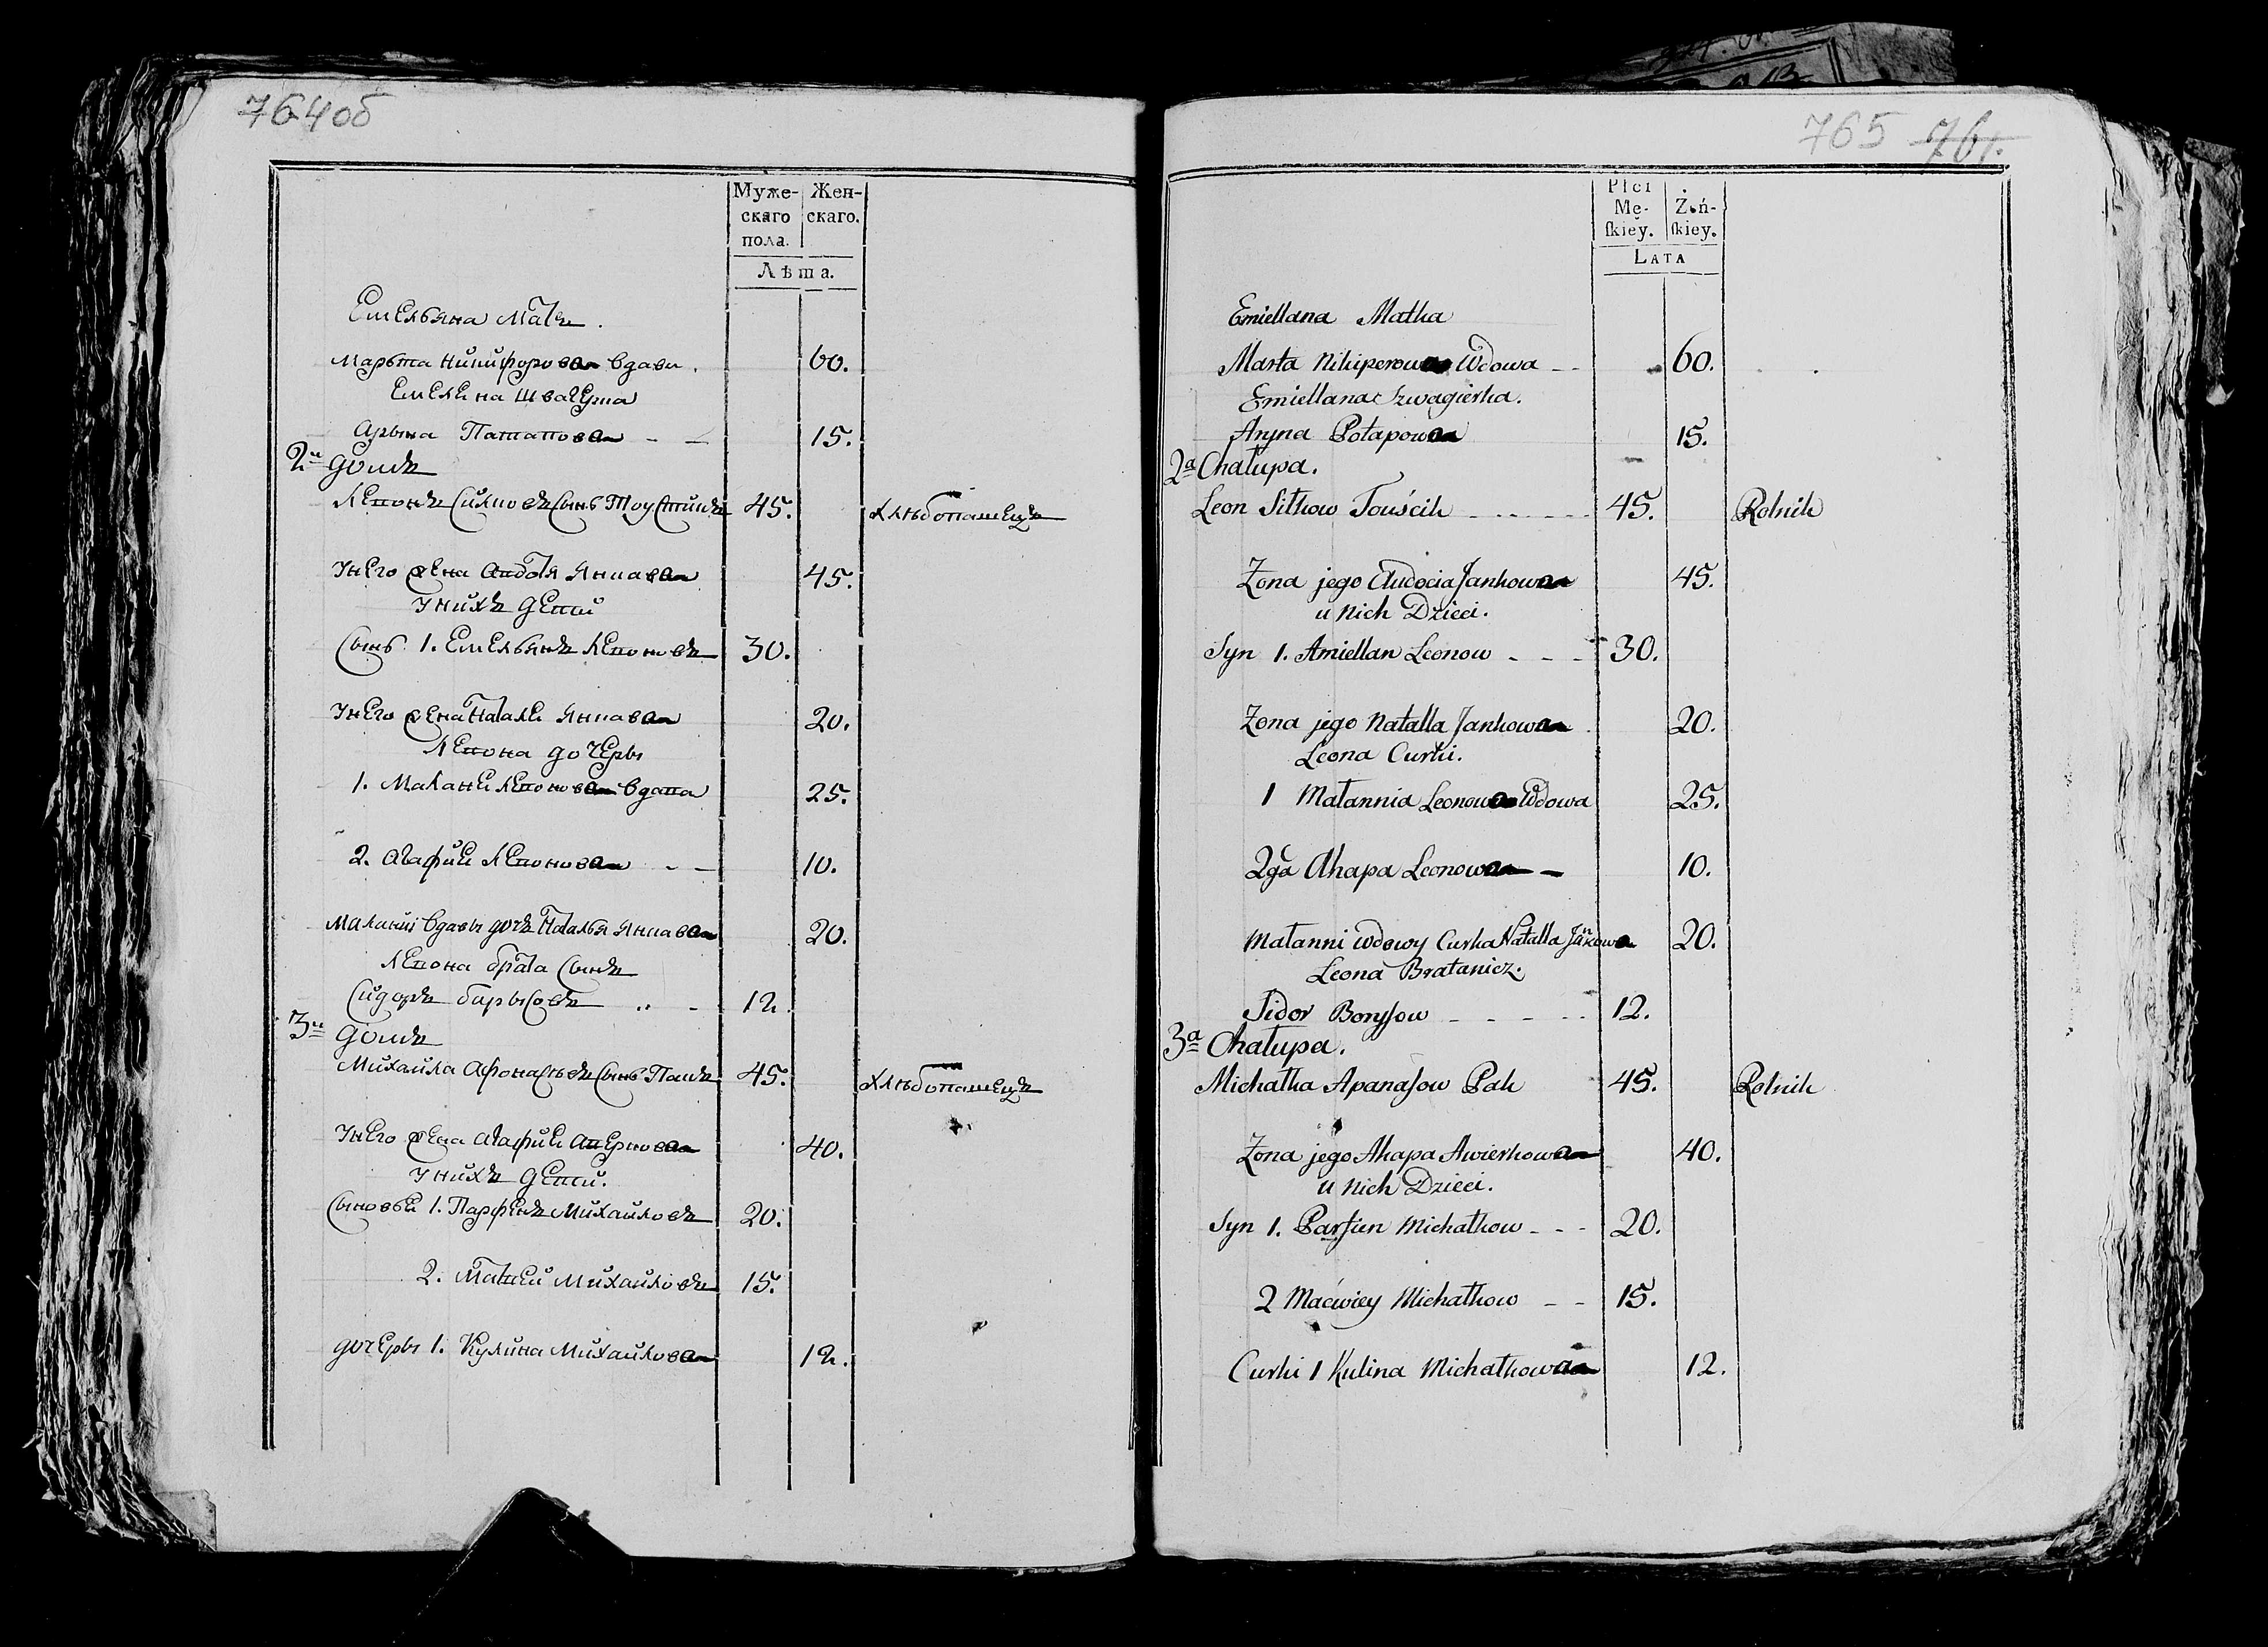 764об
Муже- Жен-
скаго скаго.
пола.
Лѣта.
Емельяна Мать.
Марьта Никифорова вдава. 60.
Емеляна швагерка
Арына Патапова - - 15.
2й домъ
Леонъ Силковъ сынъ Тоустикъ 45. хлѣбопашецъ
У него жена Авдотя Янкава 45.
У нихъ дети
Сынъ 1. Емельянъ Леоновъ 30.
У него жена Наталя Янкава 20.
Леона дочеры
1. Малания Леонова вдава 25.
2. Агафия Леонова - - 10.
Малании вдавы дочь Наталья Янкава 20.
Леона брата сынъ
Сидоръ барысовъ 12.
3й домъ
Михаила Афонасьевъ сынъ Пакъ 45. хлѣбопашецъ
У него жена Агафия Аверкова 40.
У нихъ дети.
Сыновья 1. Парфенъ Михайловъ 20.
2. Матвей Михайловъ 15.
дочеры 1. Кулина Михайлова 12.
765 761.
Płci
Mę- Żeń-
ſkiey. ſkiey.
LATA
Emiellana Matka
Marta Nikiperowa Wdowa - - 60.
Emiellana Szwagierka.
Aryna Potapowa 15.
2a Chałupa.
Leon Siłkow Touścik - - - - - 45. Rolnik
Zona jego Audocia Jankowa 45.
u nich Dzieci.
Syn 1. Amiellan Leonow - - - 30.
Zona jego Natalla Jankowa 20.
Leona Curki.
1 Małannia Leonowa Wdowa 25.
2ga Ahapa Leonowa - 10.
Małanni wdowy Curka Natalla Jankowa 20.
Leona Bratanicz.
Sidor Boryſow - - - - - 12.
3a Chałupa.
Michałka Apanaſow Pak 45. Rolnik
Zona jego Ahapa Awierkowa 40.
u nich Dzieci.
Syn 1. Parfien Michałkow - - - 20.
2 Maćwiey Michałkow - - 15.
Curki 1 Kulina Michałkowa 12.